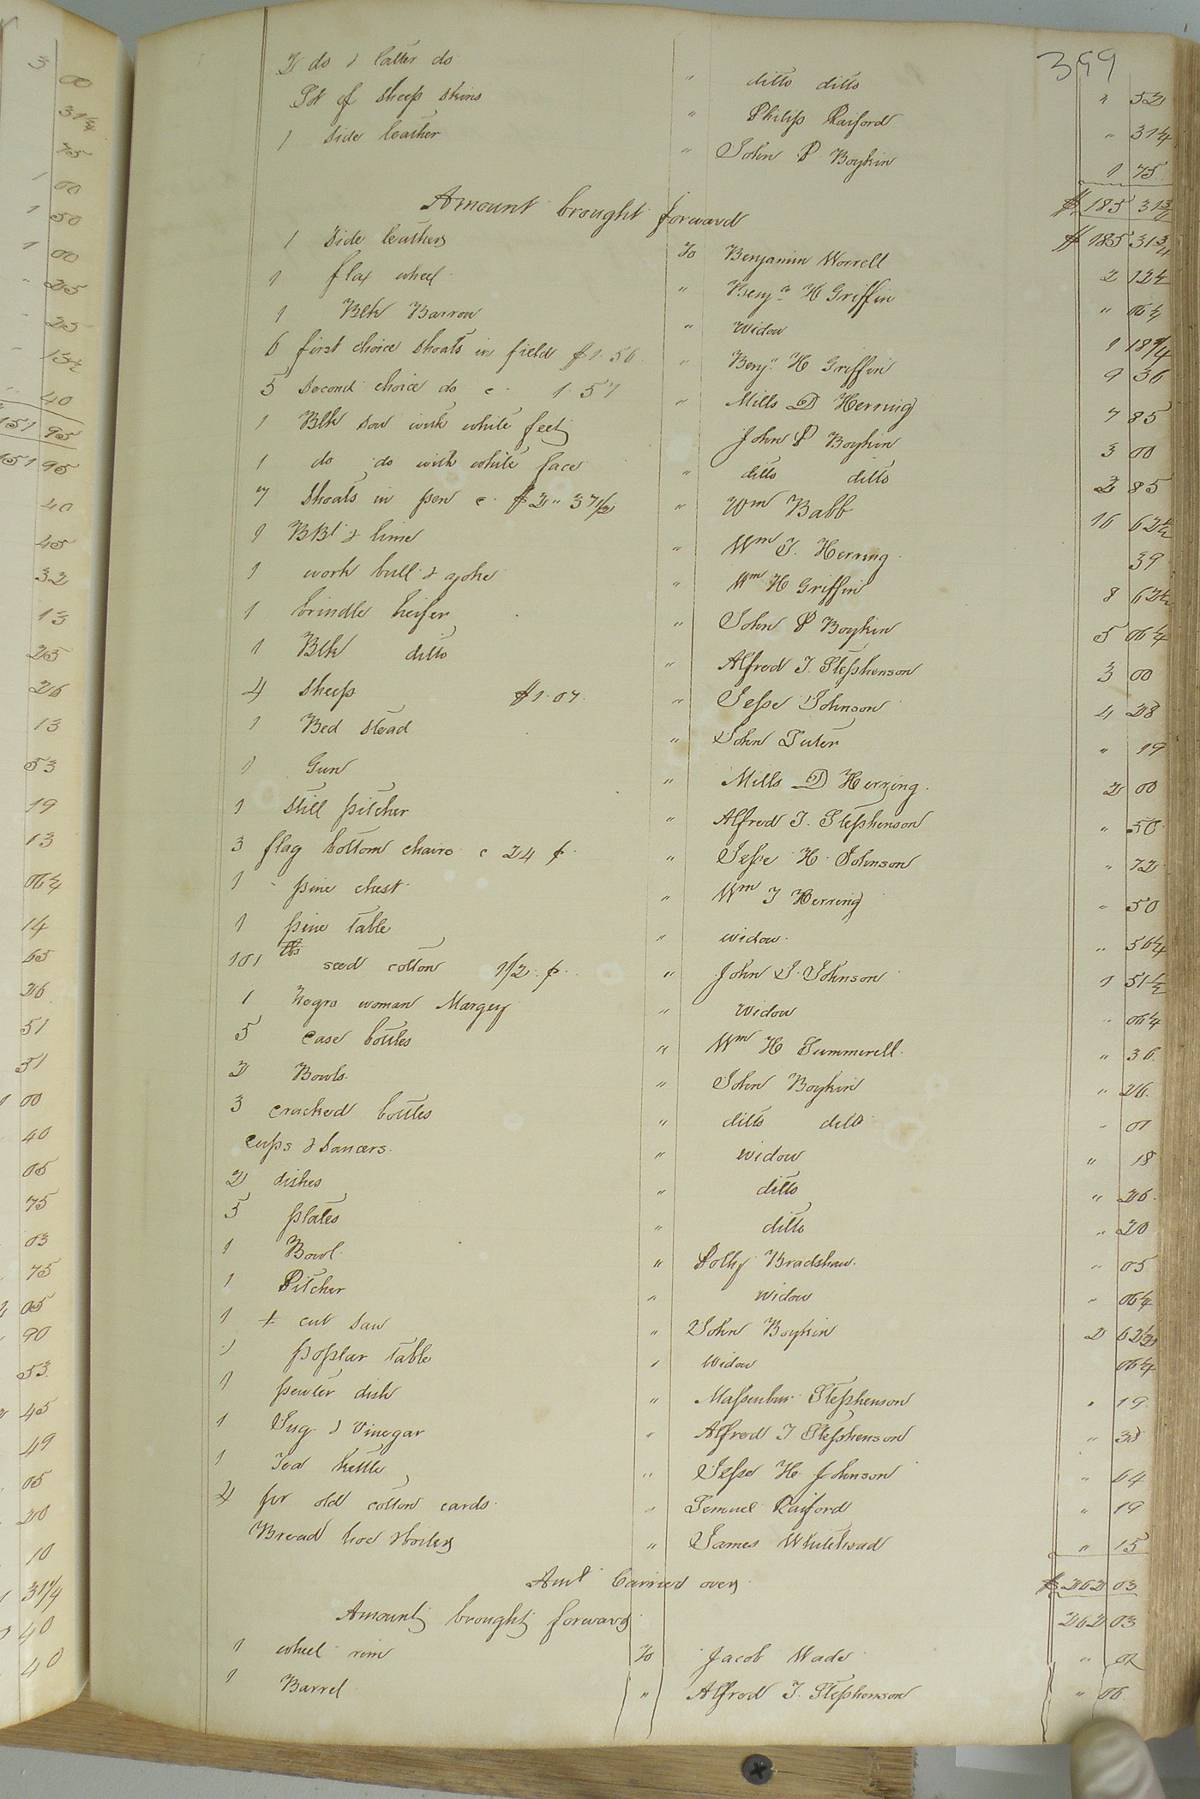 399
2 do & latter do " ditto ditto " 52
Lot of sheep skins " Philip Raiford " 31¼
1 side leather " John P Boykin 1 75
$185 31¾
Amount brought forward $185 31¾
1 side leather To Benjamin Worrell 2 12½
1 flax wheel " Benjn H Griffin " 06¼
1 Blk Barrow " Widow 1 18¾
6 first choice shoats in field $1.56 " Benjn H Griffin 9 36
5 second choice do c 1.57 " Mills D Herring 7 85
1 Blk sow with white feet John P Boykin 3 00
1 do do with white face " ditto ditto 2 85
7 shoats in pen c $2" 37½ " Wm Babb 16 62½
1 BBl & lime " Wm J. Herring 39
1 work bull & yoke " Wm H Griffin 8 62½
1 brindle heifer " John P Boykin 5 06¼
1 Blk ditto " Alfred J. Stephenson 3 00
4 sheep $1.07 " Jesse Johnson 4 28
1 Bed stead " John " 19
1 Gun " Mills D Herring 2 00
1 still pitcher " Alfred J. Stephenson " 50
3 flag bottom chairs c 24 ¢ " Jesse H. Johnson " 72
1 pine chest " Wm J Herring " 50
1 pine table " widow " 56¼
101 lbs seed cotton 1½ ¢ " John S. Johnson 1 51½
1 Negro woman Margey " Widow " 06¼
5 case bottles " Wm H Summerell " 36
2 Bowls " John Boykin " 26
3 cracked bottles " ditto ditto " 01
cups & saucers " widow " 18
2 dishes " ditto " 26
5 plates " ditto " 20
1 Bowl " Polly Bradshaw " 05
1 Pitcher " widow " 06¼
1 + cut saw " John Boykin 2 62½
1 poplar table " Widow 06¼
1 pewter dish " Stephenson " 19
1 Jug & Vinegar " Alfred J Stephenson " 38
1 Tea kettle " Jesse H. Johnson " 64
4 pr old cotton cards " Samuel Raiford " 19
Bread hoe " James Whitehead " 15
Amt Carried over $262 03
Amount brought forward 262 03
1 wheel rim To Jacob Wade "
1 Barrel " Alfred J. Stephenson " 06